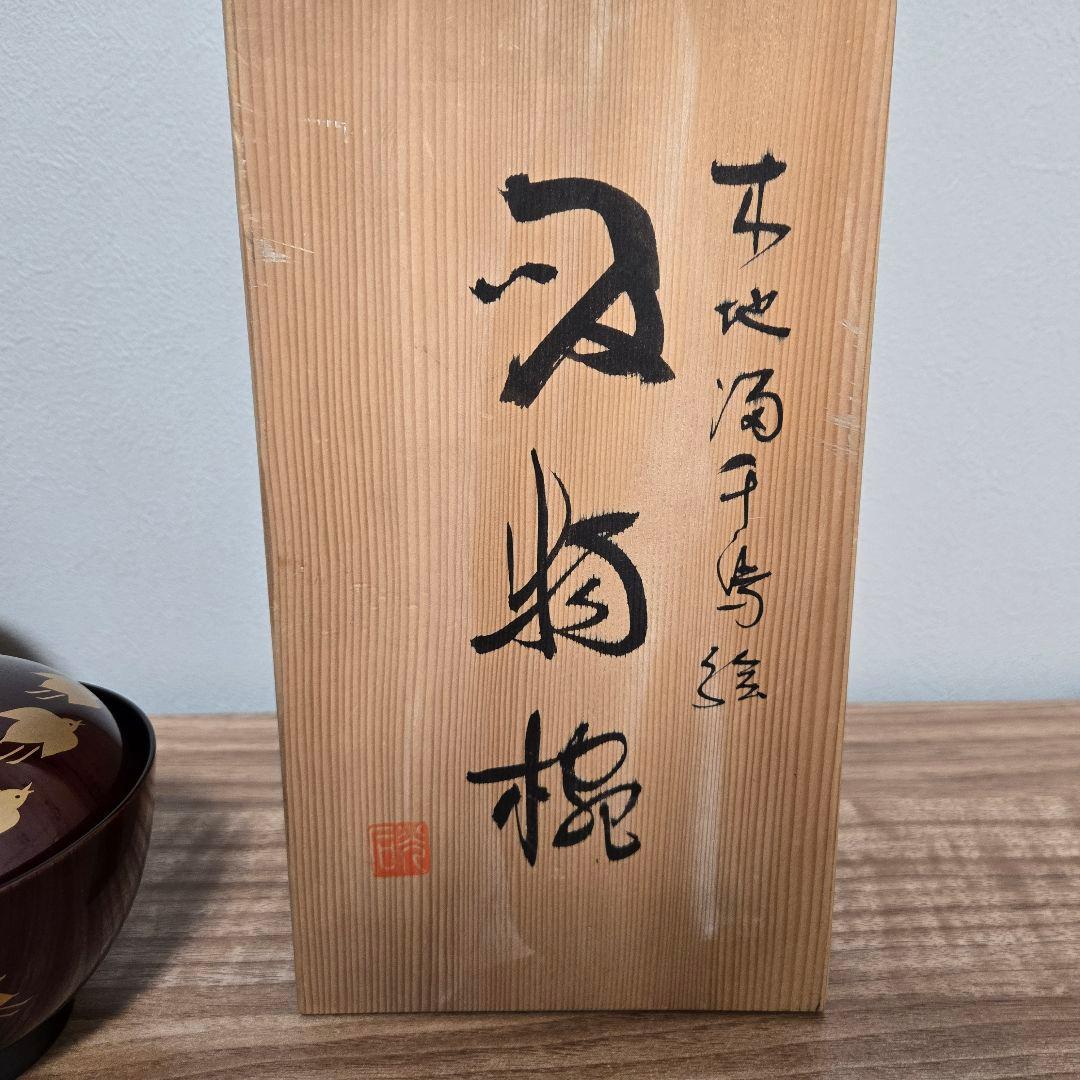 木地溜千鳥絵
吸物椀